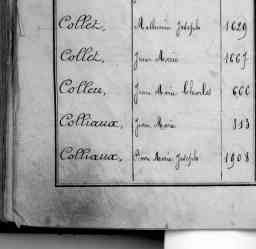 Collet, Mathurin Joseph 1629
Collet, Jean Marie 1667
Colleu, Jean Marie Charles 666
Colliaux, Jean Marie 313
Colliaux, Pierre Marie Joseph 1908